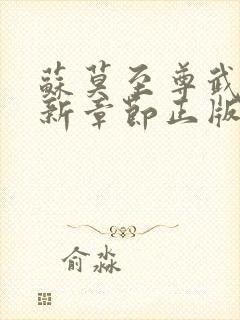 蘇莫至尊武
新章節正版
俞淼